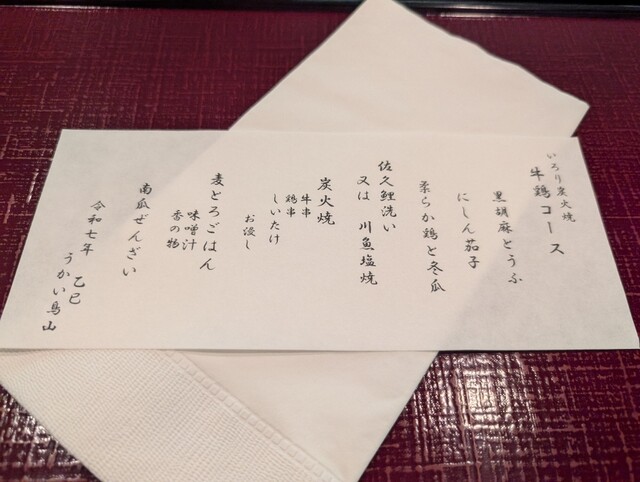 いろり炭火焼
牛鶏コース
黒胡麻とうふ
にしん茄子
柔らか鶏と冬瓜
佐久鯉洗い
又は 川魚塩焼
炭火焼
牛串
鶏串
しいたけ
お浸し
麦とろごはん
味噌汁
香の物
南瓜ぜんざい
令和七年 乙巳
うかい鳥山